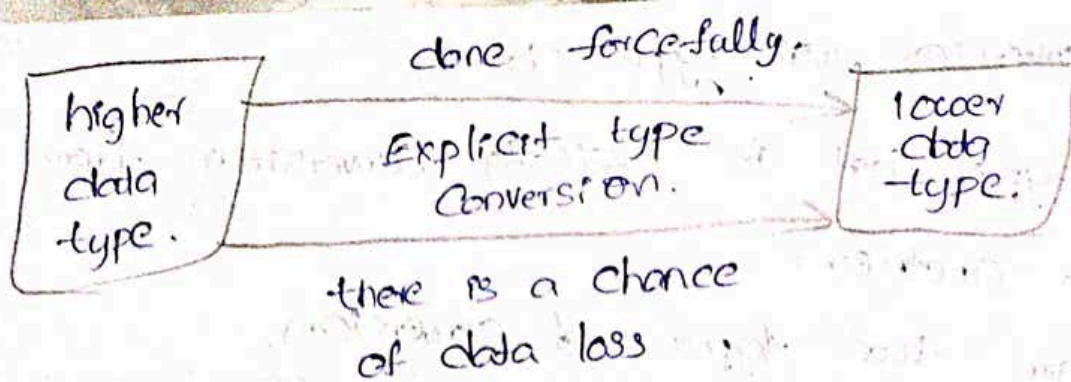 done forcefully.
higher
data
type.
Explicit type
Conversion.
lower
data
type.
there is a chance
of data loss